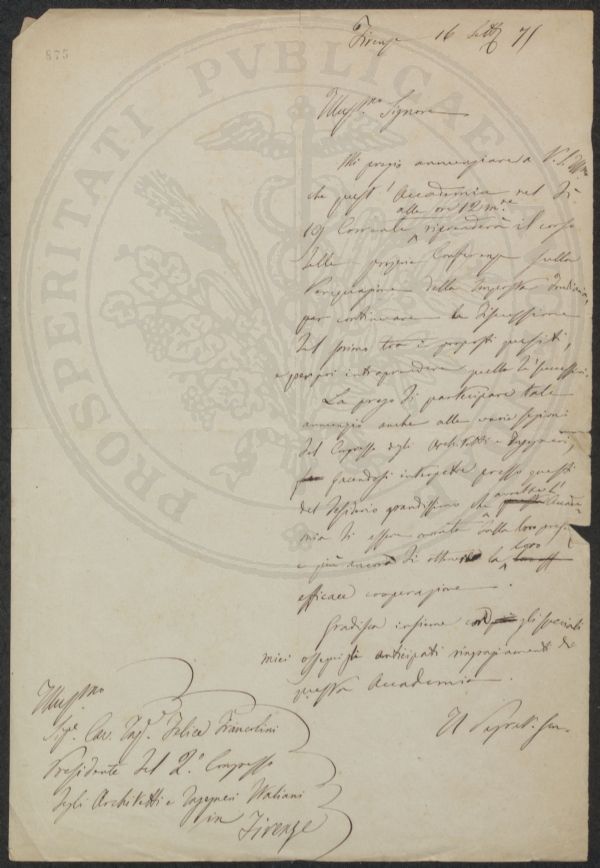 875
PROSPERITATI PVBLICAE
Firenze 16 Sett. 75
Illmo. Signore
Mi pregio annunziare a V. S. Illma.
che quest'Accademia nel dì
19 Corrente alle ore 12 mne. riprenderà il corso
delle proprie Conferenze sulla
Perequazione della Imposta fondiaria,
per continuare la discussione
del primo tra i proposti quesiti,
e per poi intraprendere quella de' successivi.
La prego di partecipare tale
annunzio anche alle varie sezioni
del Congresso degli Architetti e Ingegneri,
facendosi interpetre presso questi
del desiderio grandissimo che
di essere onorata dalla loro
e più ancora di ottenere la loro
efficace cooperazione.
Gradisca insieme gli speciali
miei ossequi gli anticipati ringraziamenti di
questa Accademia.
Il Segret. Gen.
Illmo.
Sige. Cav. Ingr. Felice Francolini
Presidente del 2.° Congresso
degli Architetti e Ingegneri Italiani
in Firenze